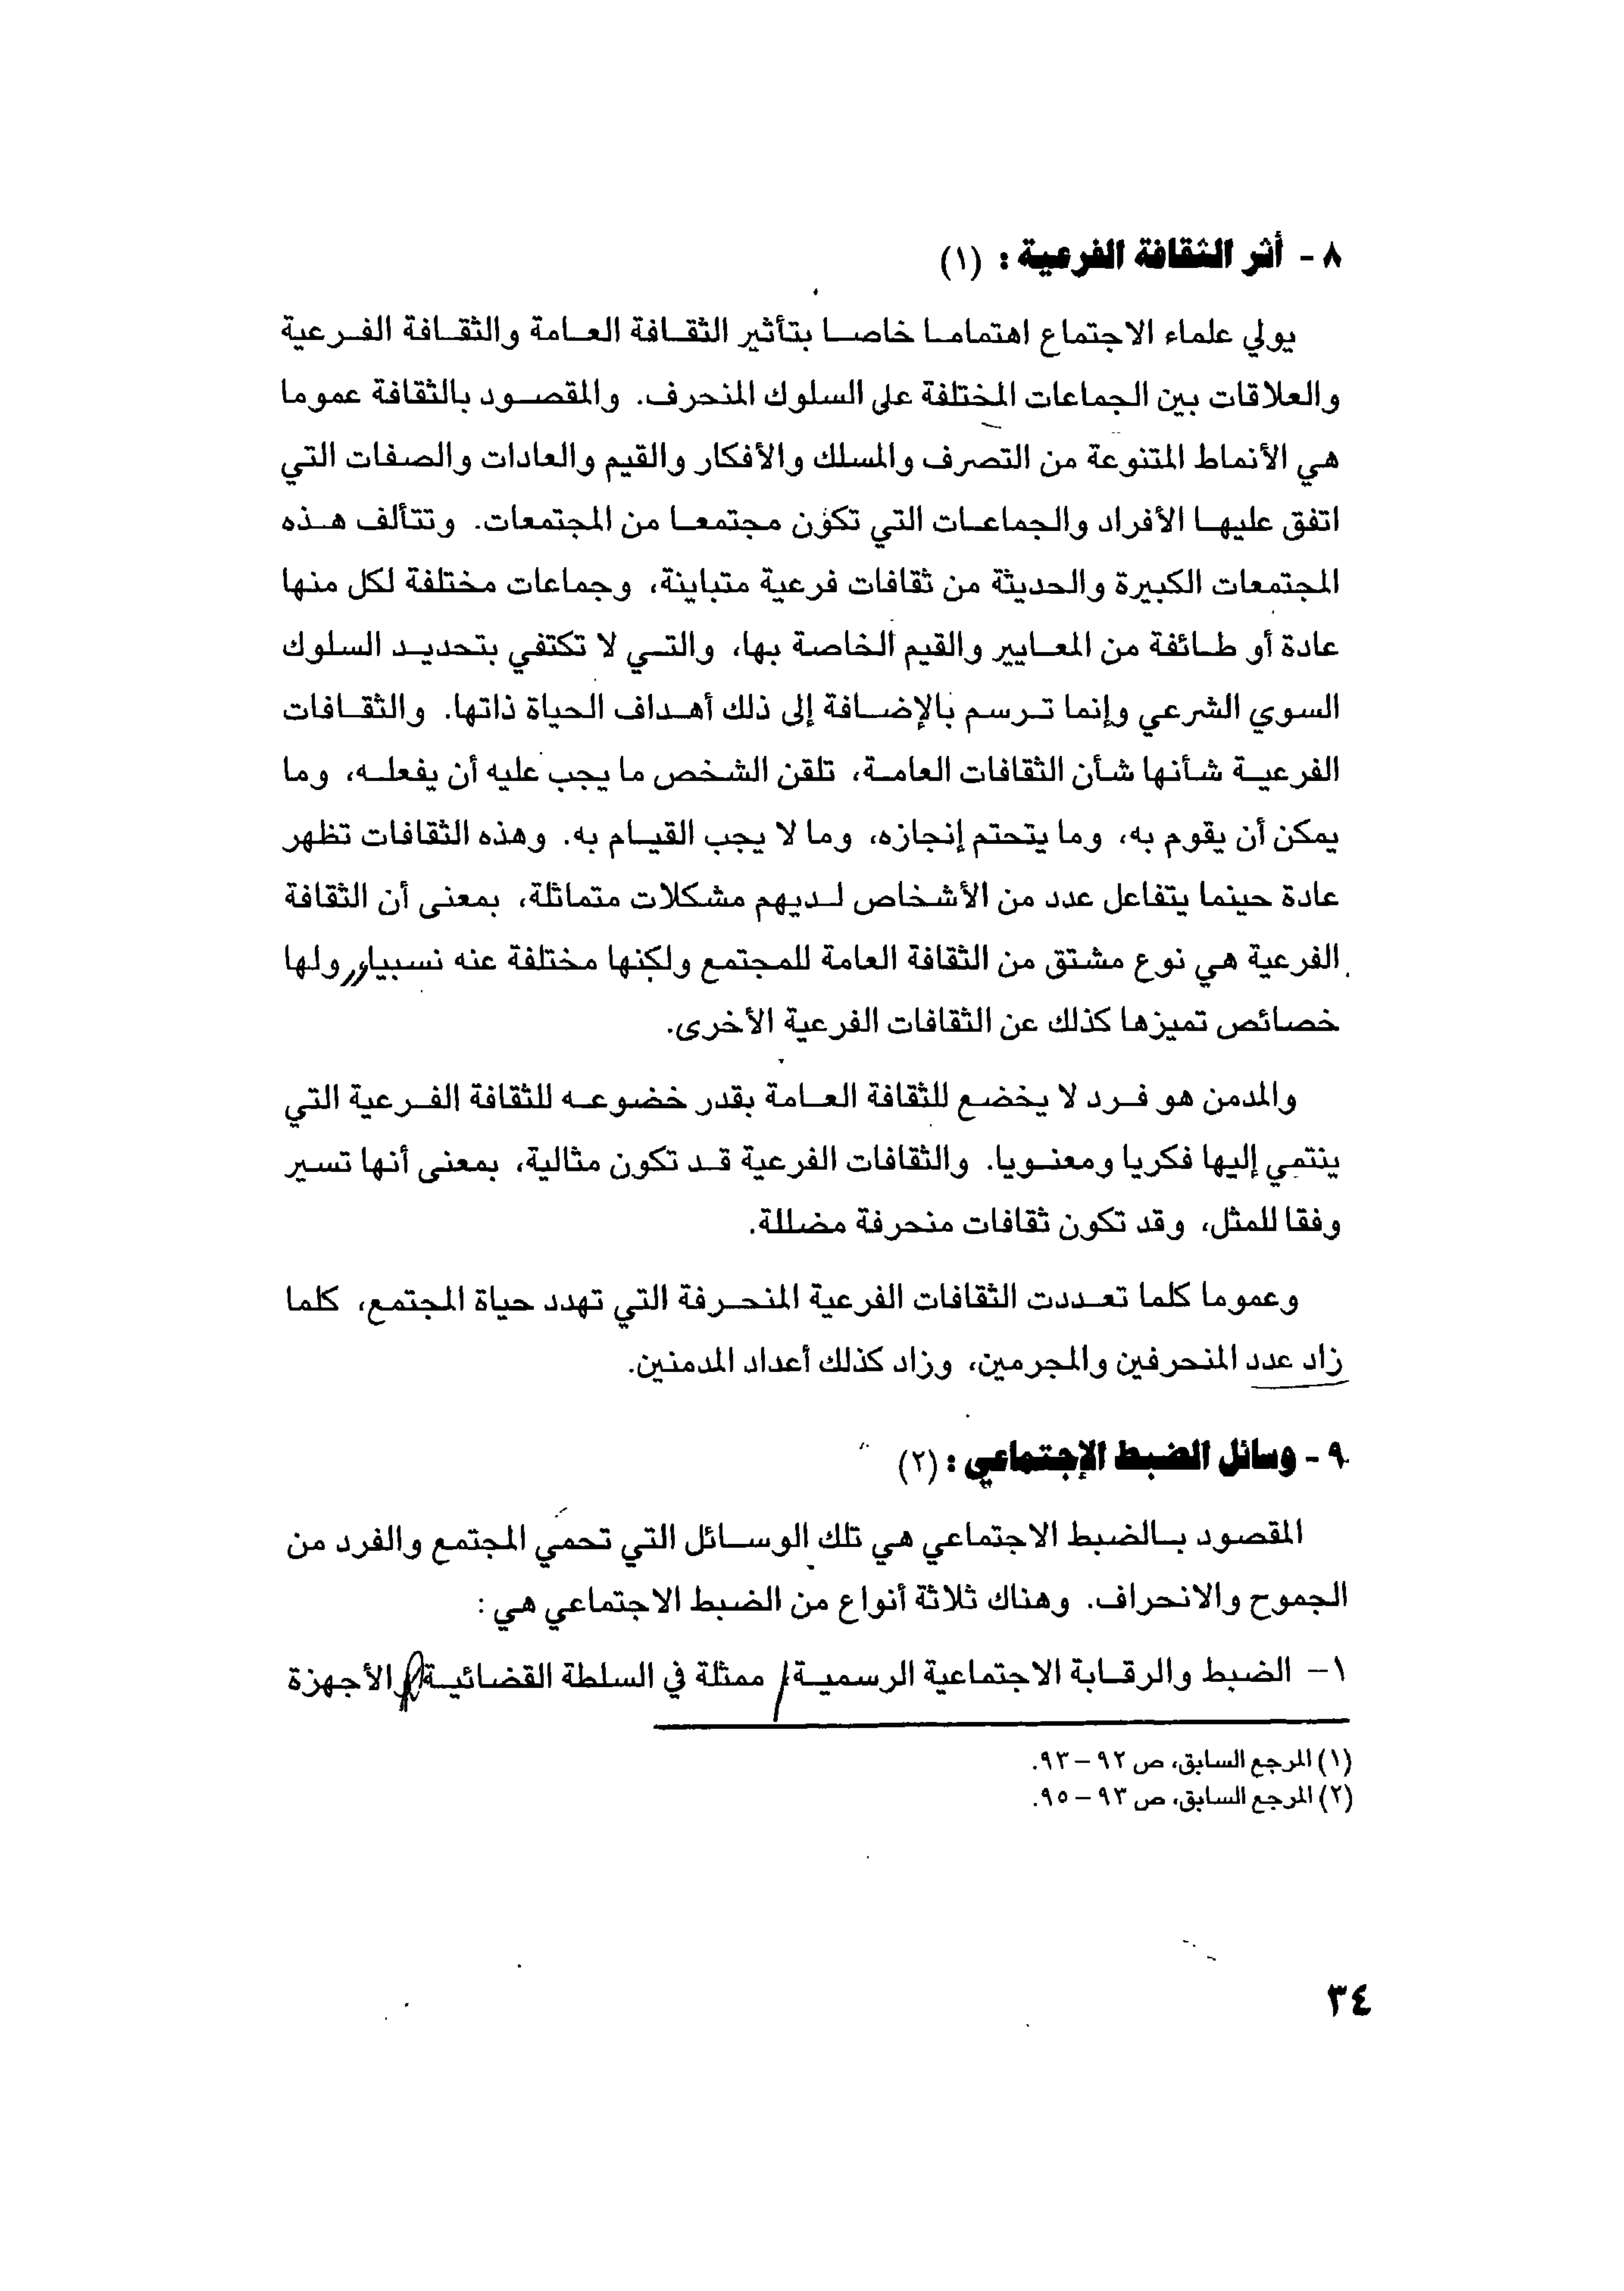 ٨ - أثر الثقافة الفرعية : (١)
يولي علماء الاجتماع اهتماما خاصا بتأثير الثقافة العامة والثقافة الفرعية
والعلاقات بين الجماعات المختلفة على السلوك المنحرف. والمقصود بالثقافة عموما
هي الأنماط المتنوعة من التصرف والمسلك والأفكار والقيم والعادات والصفات التي
اتفق عليها الأفراد والجماعات التي تكوّن مجتمعا من المجتمعات. وتتألف هذه
المجتمعات الكبيرة والحديثة من ثقافات فرعية متباينة، وجماعات مختلفة لكل منها
عادة أو طائفة من المعايير والقيم الخاصة بها، والتي لا تكتفي بتحديد السلوك
السوي الشرعي وإنما ترسم بالإضافة إلى ذلك أهداف الحياة ذاتها. والثقافات
الفرعية شأنها شأن الثقافات العامة، تلقن الشخص ما يجب عليه أن يفعله، وما
يمكن أن يقوم به، وما يتحتم إنجازه، وما لا يجب القيام به. وهذه الثقافات تظهر
عادة حينما يتفاعل عدد من الأشخاص لديهم مشكلات متماثلة، بمعنى أن الثقافة
الفرعية هي نوع مشتق من الثقافة العامة للمجتمع ولكنها مختلفة عنه نسبيا، ولها
خصائص تميزها كذلك عن الثقافات الفرعية الأخرى.
والمدمن هو فرد لا يخضع للثقافة العامة بقدر خضوعه للثقافة الفرعية التي
ينتمي إليها فكريا ومعنويا. والثقافات الفرعية قد تكون مثالية، بمعنى أنها تسير
وفقا للمثل، وقد تكون ثقافات منحرفة مضللة.
وعموما كلما تعددت الثقافات الفرعية المنحرفة التي تهدد حياة المجتمع، كلما
زاد عدد المنحرفين والمجرمين، وزاد كذلك أعداد المدمنين.
٩ - وسائل الضبط الإجتماعي : (٢)
المقصود بالضبط الاجتماعي هي تلك الوسائل التي تحمي المجتمع والفرد من
الجموح والانحراف. وهناك ثلاثة أنواع من الضبط الاجتماعي هي :
١ - الضبط والرقابة الاجتماعية الرسمية، ممثلة في السلطة القضائية والأجهزة
(١) المرجع السابق، ص ٩٢ - ٩٣.
(٢) المرجع السابق، ص ٩٣ - ٩٥.
٣٤